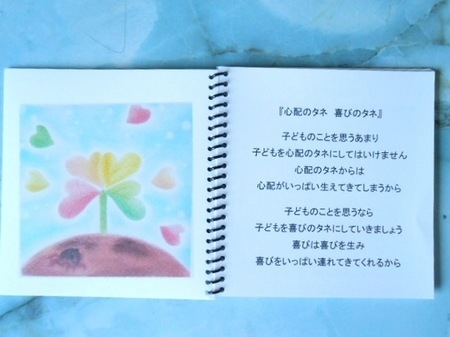 『心配のタネ 喜びのタネ』
子どものことを思うあまり
子どもを心配のタネにしてはいけません
心配のタネからは
心配がいっぱい生えてきてしまうから
子どものことを思うなら
子どもを喜びのタネにしていきましょう
喜びは喜びを生み
喜びをいっぱい連れてきてくれるから